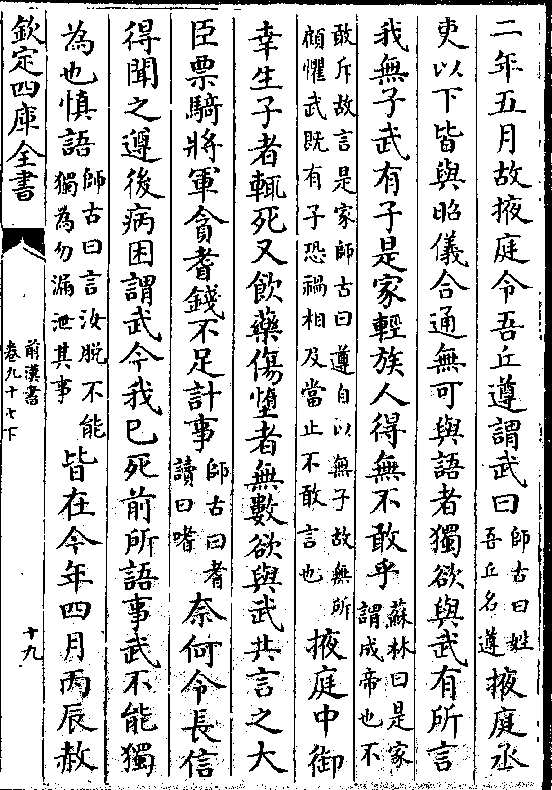 二年五月故掖庭令吾丘遵謂武曰師古曰姓吾丘名遵掖庭丞
吏以下皆與昭儀合通無可與語者獨欲與武有所言
我無子武有子是家輕族人得無不敢乎蘇林曰是家謂成帝也不
敢斥故言是家師古曰遵自以無子故無所顧懼武既有子恐禍相及當止不敢言也掖庭中御
幸生子者輒死又飲藥傷墮者無數欲與武共言之大
臣票騎將軍貪耆錢不足計事師古曰耆讀曰嗜奈何令長信
得聞之遵後病困謂武今我已死前所語事武不能獨
為也慎語師古曰言汝脫不能獨為勿漏泄其事皆在今年四月丙辰赦
欽定四庫全書
前漢書
卷九十七下
十九